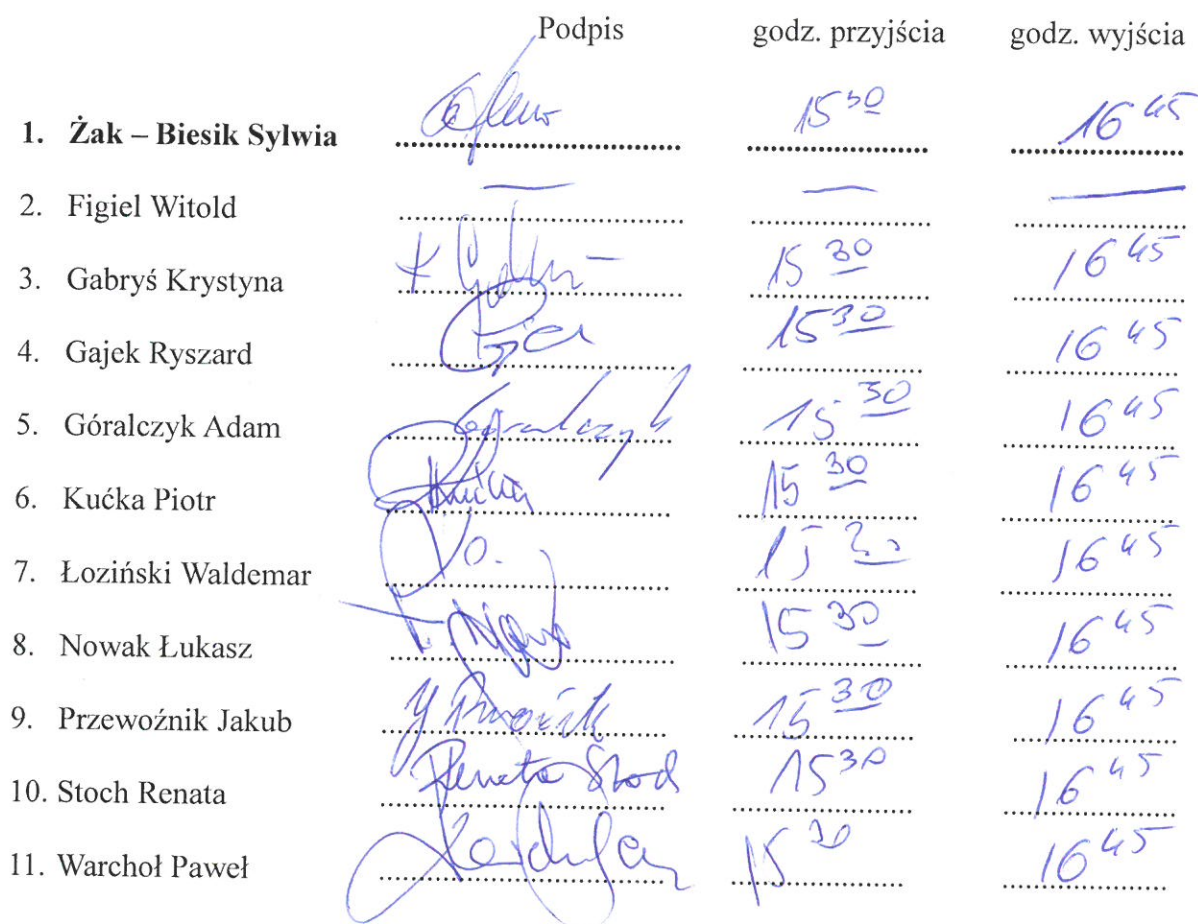 Podpis godz. przyjścia godz. wyjścia
1. Żak – Biesik Sylwia 15 30 16 45
2. Figiel Witold — — —
3. Gabryś Krystyna 15 30 16 45
4. Gajek Ryszard 15 30 16 45
5. Góralczyk Adam Góralczyk 15 30 16 45
6. Kućka Piotr 15 30 16 45
7. Łoziński Waldemar 15 30 16 45
8. Nowak Łukasz 15 30 16 45
9. Przewoźnik Jakub 15 30 16 45
10. Stoch Renata Renata Stoch 15 30 16 45
11. Warchoł Paweł 15 30 16 45